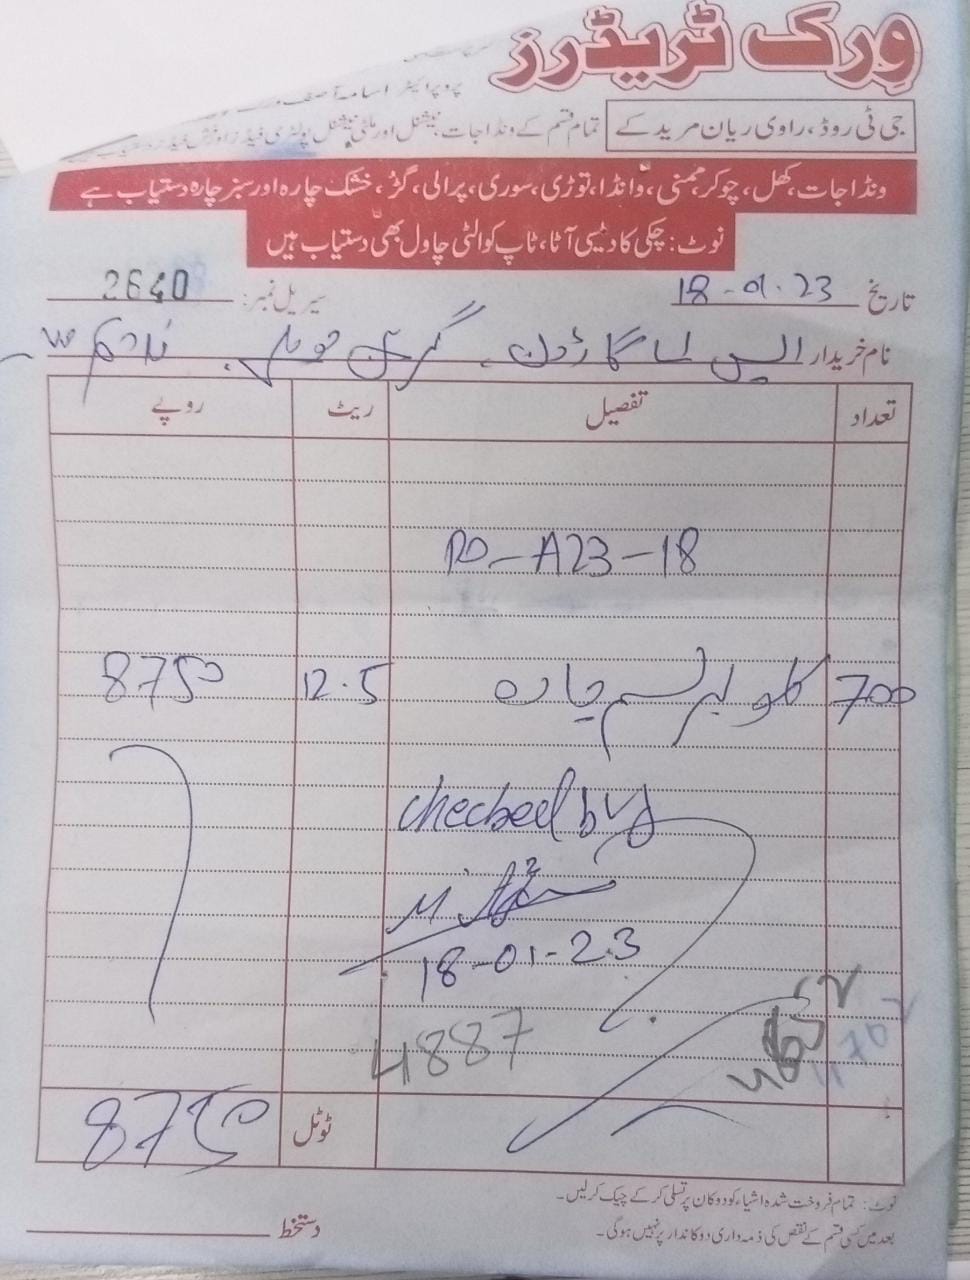 وِرک ٹریڈرز
پروپرائیٹر اسامہ آصف
جی ٹی روڈ، راوی ریان مرید کے
تمام قسم کے ونڈا جات، نیشنل اور ملٹی نیشنل پولٹری فیڈز اور فش فیڈز
ونڈا جات، کھل، چوکر، ممنی، وانڈا، توڑی، سوری، پرالی، گڑ، خشک چارہ اور سبز چارہ دستیاب ہے
نوٹ: چکی کا دیسی آٹا، ٹاپ کوالٹی چاول بھی دستیاب ہیں
تاریخ 18-01-23 سیریل نمبر: 2640
نام خریدار
تعداد تفصیل ریٹ روپے
PO-A23-18
700 کلو برسیم چارہ 12.5 8750
checked by
18-01-23
4887
ٹوٹل 8750
نوٹ: تمام فروخت شدہ اشیاء کو دوکان پر تسلی کر کے چیک کر لیں۔
بعد میں کسی قسم کے نقص کی ذمہ داری دوکاندار پر نہیں ہو گی۔
دستخط